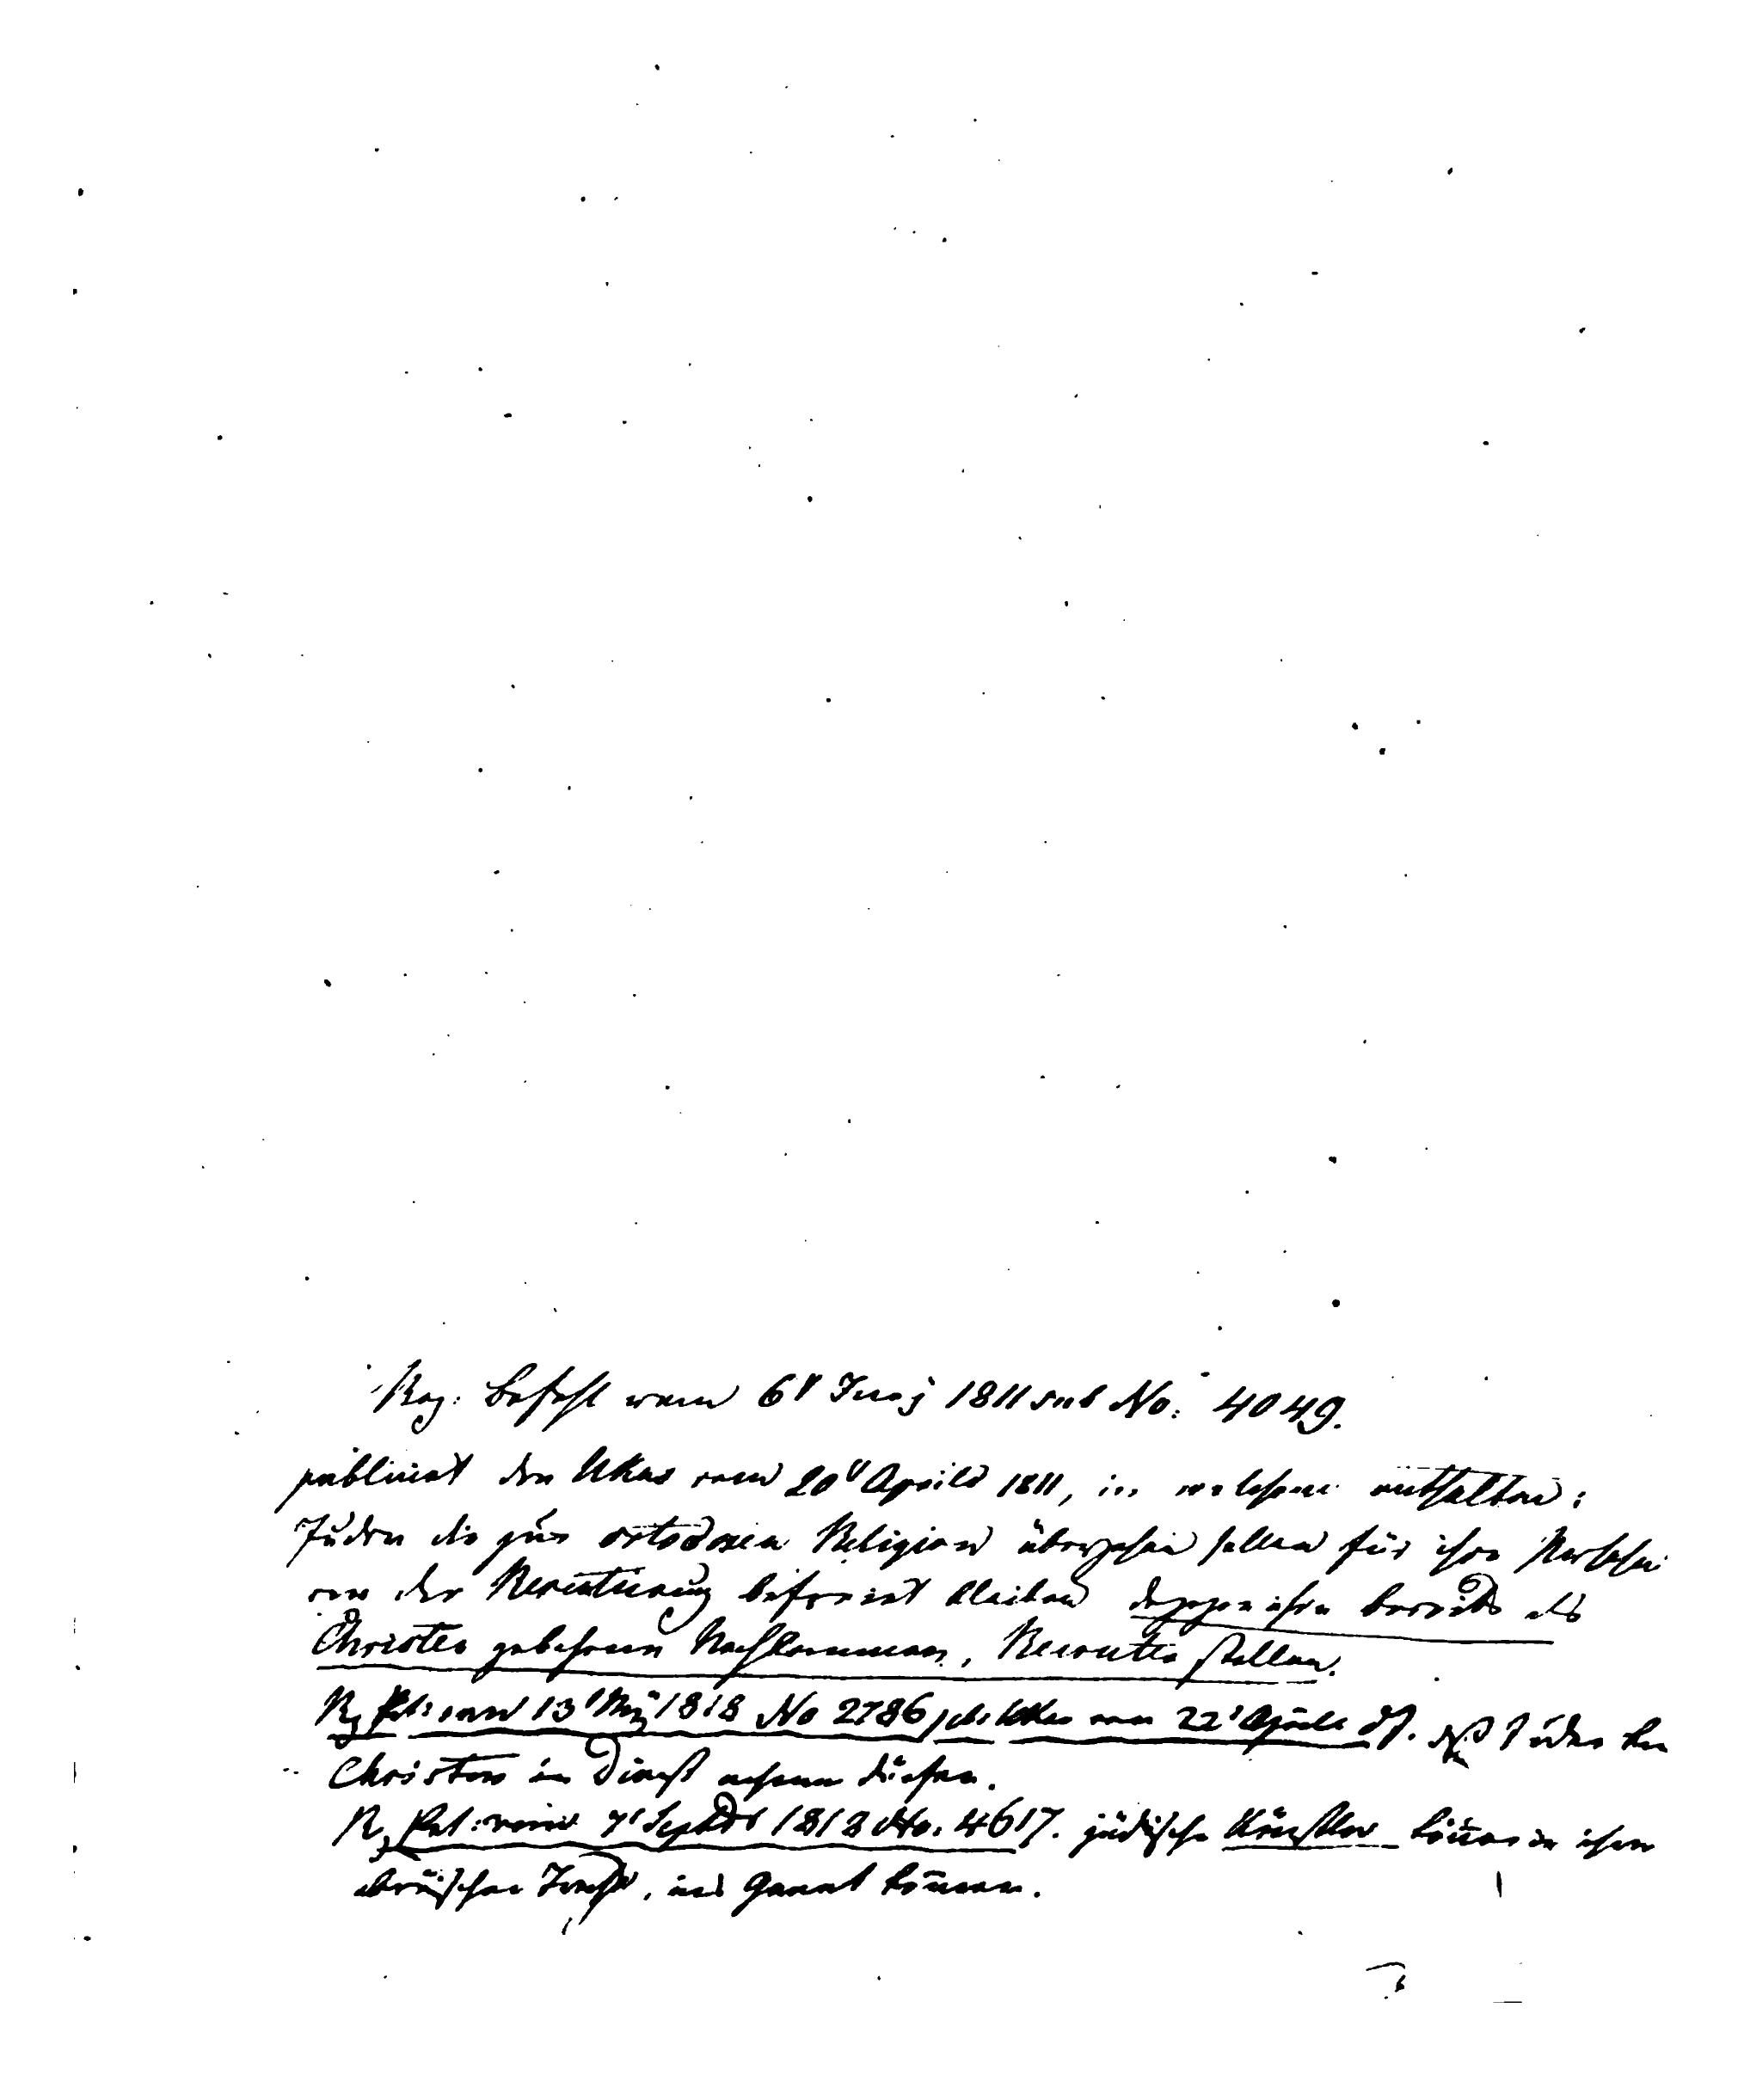 Reg: Befehl vom 6t Junj 1811 sub No: 4049.
publicirt den Ukas vom 20t Aprild 1811, in welchem enthalten:
Juden die zur ortodoxen Religion übergehen sollen für ihre
von der Recrutirung befreiet bleiben dagegen ihre bereits als
Christen gebohrnen Nachkommen, Recruten stellen.
Rg vom 13t May 1818 No 2786, Ukas vom 22t Aprill daß Juden
Christen in Dienst nehmen dürfen.
Rg vom 7t Septbr 1818 No. 4617. jüdische Künstler können in ihrer
Tracht, ins können.